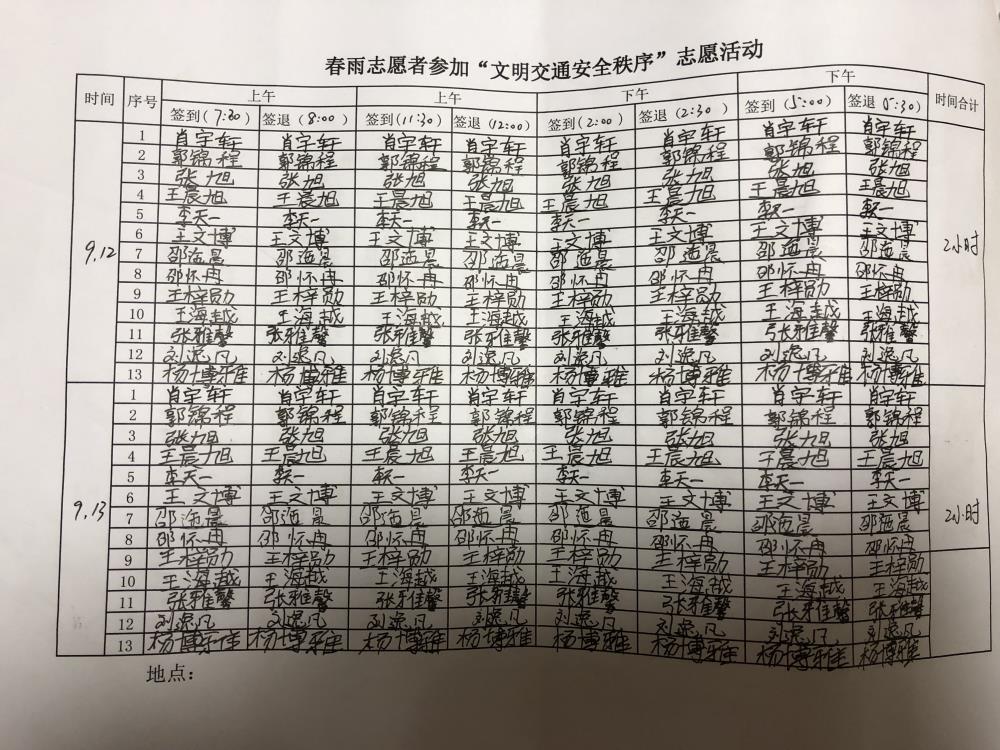 春雨志愿者参加“文明交通安全秩序”志愿活动
时间 序号 上午 上午 下午 下午 时间合计
签到(7:30) 签退(8:00) 签到(11:30) 签退(12:00) 签到(2:00) 签退(2:30) 签到(5:00) 签退(5:30)
9.12 2小时
1 肖宇轩 肖宇轩 肖宇轩 肖宇轩 肖宇轩 肖宇轩 肖宇轩 肖宇轩
2 郭锦程 郭锦程 郭锦程 郭锦程 郭锦程 郭锦程 郭锦程 郭锦程
3 张旭 张旭 张旭 张旭 张旭 张旭 张旭 张旭
4 王晨旭 王晨旭 王晨旭 王晨旭 王晨旭 王晨旭 王晨旭 王晨旭
5 李天一 李天一 李天一 李天一 李天一 李天一 李天一 李天一
6 王文博 王文博 王文博 王文博 王文博 王文博 王文博 王文博
7 邵海晨 邵海晨 邵海晨 邵海晨 邵海晨 邵海晨 邵海晨 邵海晨
8 邵怀冉 邵怀冉 邵怀冉 邵怀冉 邵怀冉 邵怀冉 邵怀冉 邵怀冉
9 王梓勋 王梓勋 王梓勋 王梓勋 王梓勋 王梓勋 王梓勋 王梓勋
10 王海越 王海越 王海越 王海越 王海越 王海越 王海越 王海越
11 张雅馨 张雅馨 张雅馨 张雅馨 张雅馨 张雅馨 张雅馨 张雅馨
12 刘逸凡 刘逸凡 刘逸凡 刘逸凡 刘逸凡 刘逸凡 刘逸凡 刘逸凡
13 杨博雅 杨博雅 杨博雅 杨博雅 杨博雅 杨博雅 杨博雅 杨博雅
9.13 2小时
1 肖宇轩 肖宇轩 肖宇轩 肖宇轩 肖宇轩 肖宇轩 肖宇轩 肖宇轩
2 郭锦程 郭锦程 郭锦程 郭锦程 郭锦程 郭锦程 郭锦程 郭锦程
3 张旭 张旭 张旭 张旭 张旭 张旭 张旭 张旭
4 王晨旭 王晨旭 王晨旭 王晨旭 王晨旭 王晨旭 王晨旭 王晨旭
5 李天一 李天一 李天一 李天一 李天一 李天一 李天一 李天一
6 王文博 王文博 王文博 王文博 王文博 王文博 王文博 王文博
7 邵海晨 邵海晨 邵海晨 邵海晨 邵海晨 邵海晨 邵海晨 邵海晨
8 邵怀冉 邵怀冉 邵怀冉 邵怀冉 邵怀冉 邵怀冉 邵怀冉 邵怀冉
9 王梓勋 王梓勋 王梓勋 王梓勋 王梓勋 王梓勋 王梓勋 王梓勋
10 王海越 王海越 王海越 王海越 王海越 王海越 王海越 王海越
11 张雅馨 张雅馨 张雅馨 张雅馨 张雅馨 张雅馨 张雅馨 张雅馨
12 刘逸凡 刘逸凡 刘逸凡 刘逸凡 刘逸凡 刘逸凡 刘逸凡 刘逸凡
13 杨博雅 杨博雅 杨博雅 杨博雅 杨博雅 杨博雅 杨博雅 杨博雅
地点：